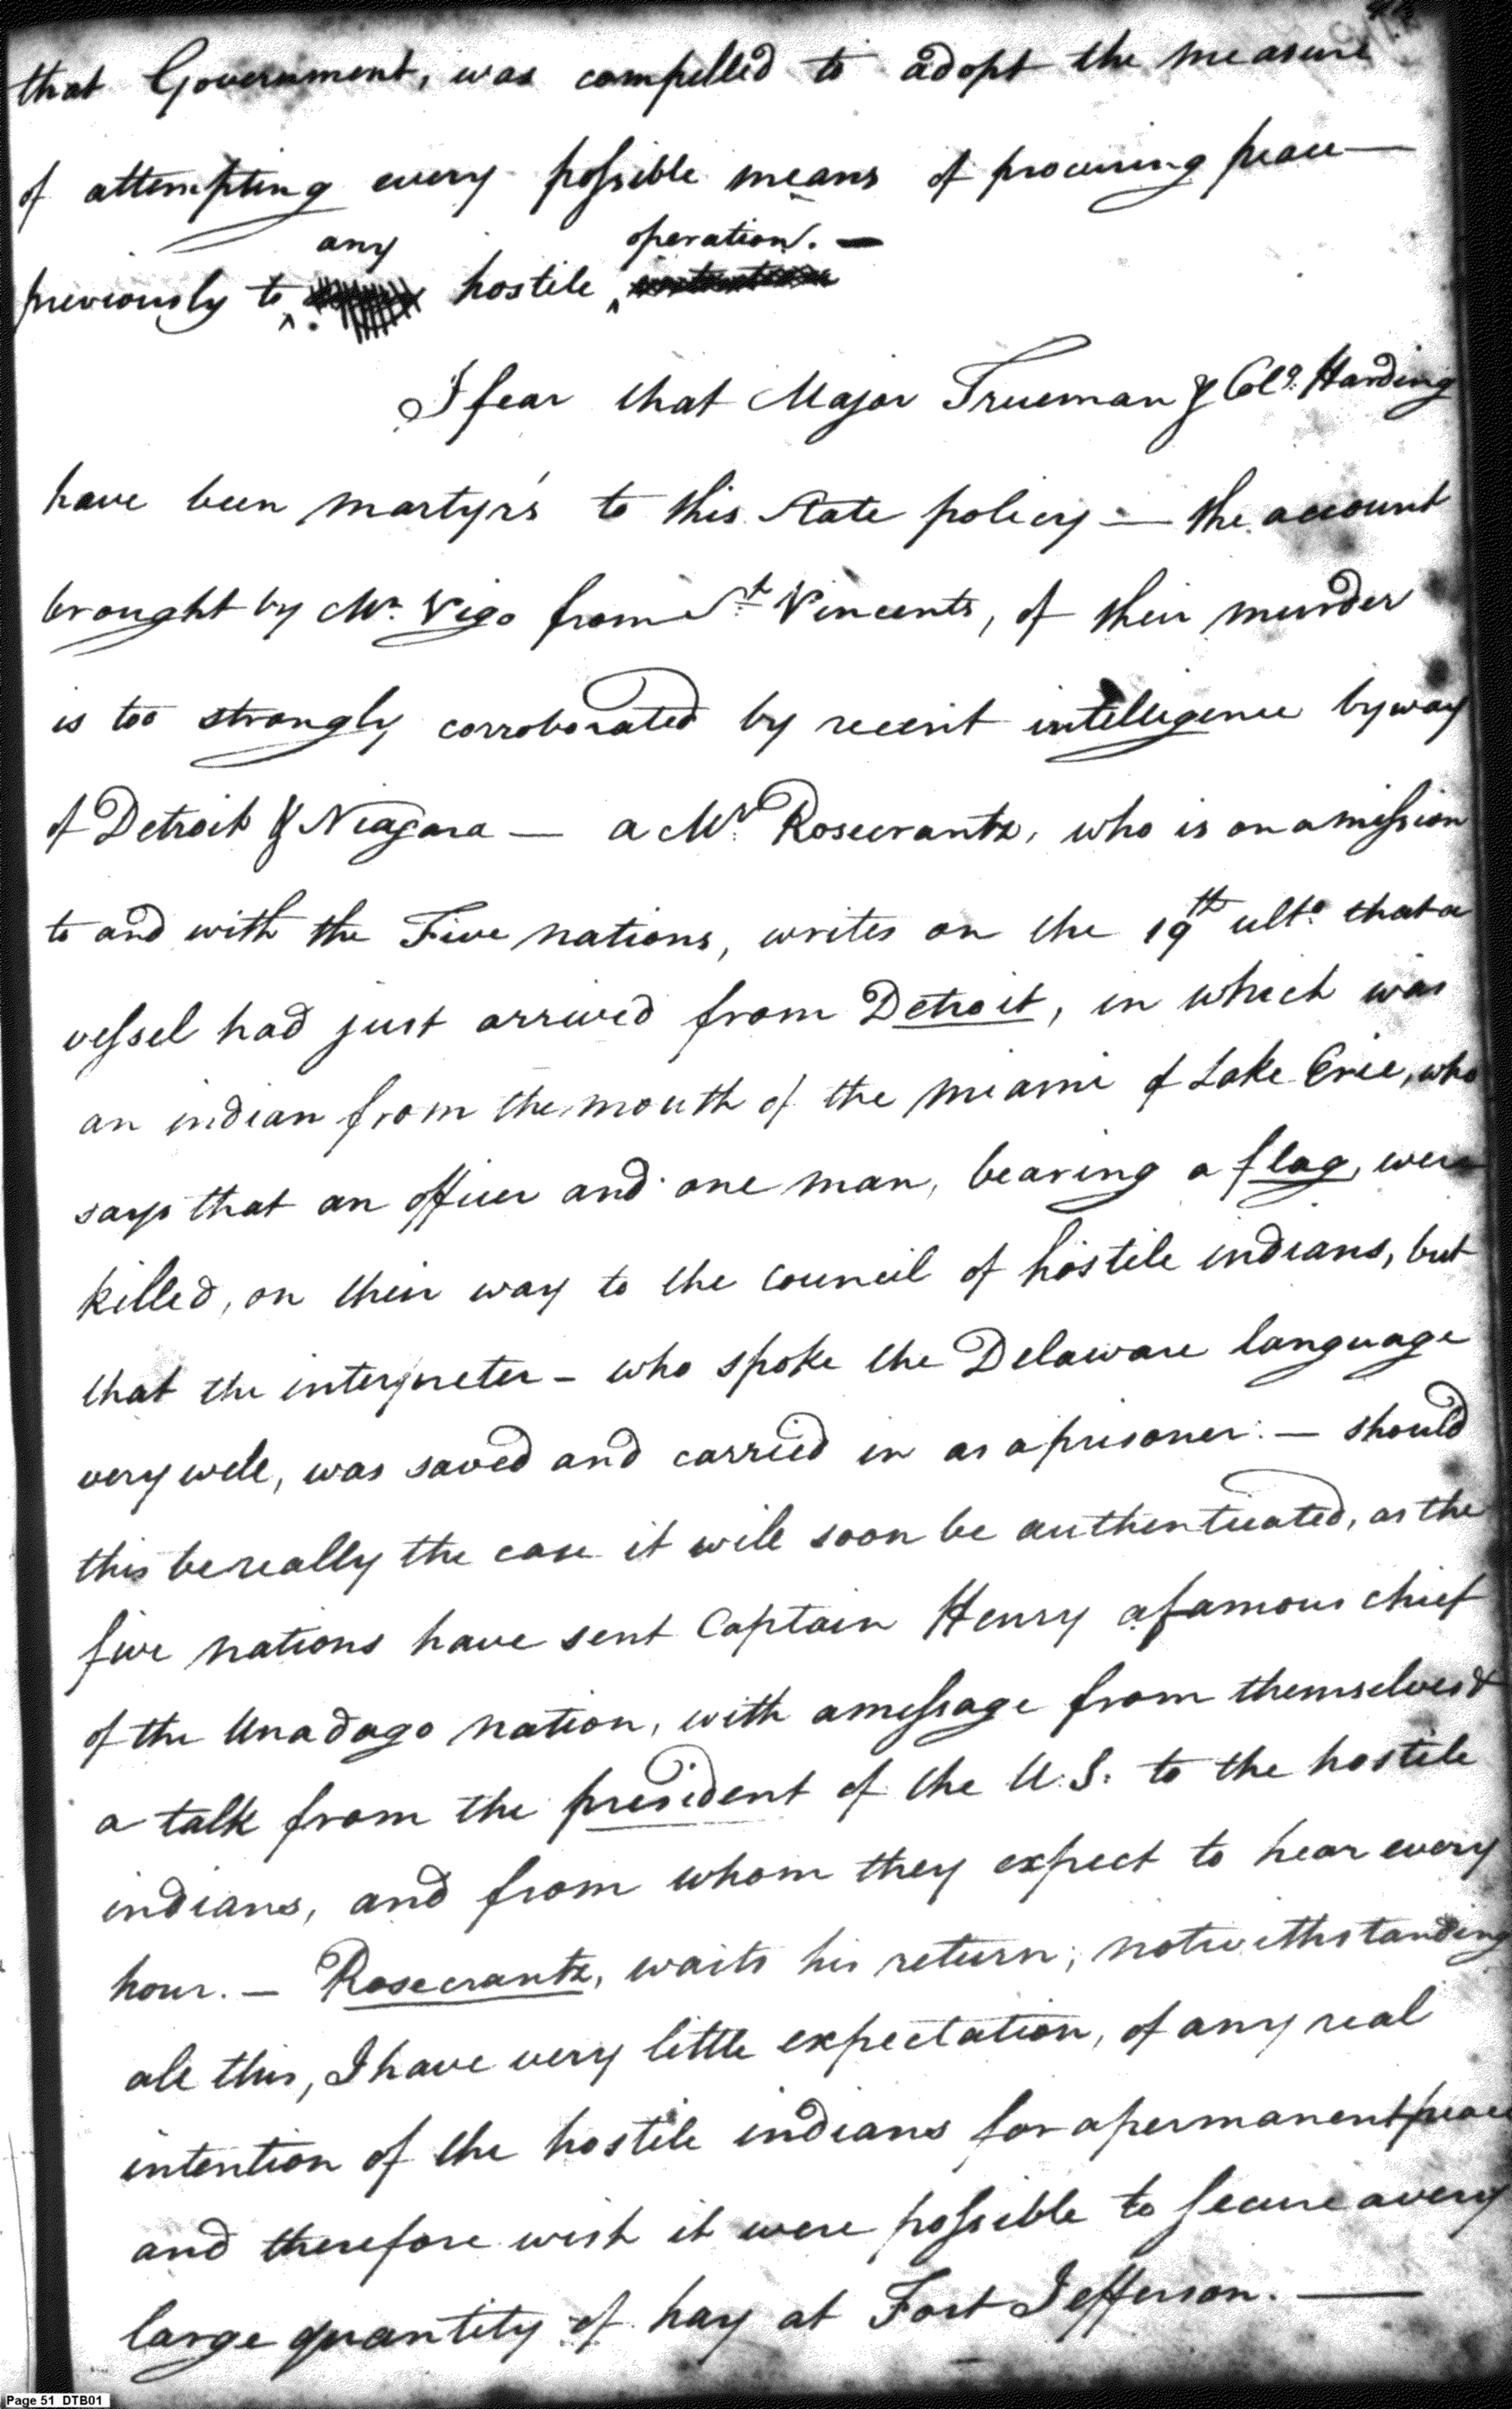 that Government, was compelled to adopt the measure
of attempting every possible means of procuring peace—
any operation. —
previously to hostile
I fear that Major Trueman & Colo. Harding
have been martyr's to this State policy — the account
brought by Mr. Vigo from St. Vincents, of their murder
is too strongly corroborated by recent intelligence by way
of Detroit & Niagara — a Mr. Rosecrantz, who is on a mission
to and with the Five nations, writes on the 19th ulto. that a
vessel had just arrived from Detroit, in which was
an indian from the mouth of the miami of Lake Erie, who
says that an officer and one man, bearing a flag, were
killed, on their way to the Council of hostile indians, but
that the interpreter - who spoke the Delaware language
very well, was saved and carried in as a prisoner. — should
this be really the case it will soon be authenticated, as the
five nations have sent Captain Henry a famous chief
of the Unadago nation, with a message from themselves &
a talk from the president of the U.S. to the hostile
indians, and from whom they expect to hear every
hour. — Rosecrantz, waits his return; notwithstanding
all this, I have very little expectation, of any real
intention of the hostile indians for a permanent peace
and therefore wish it were possible to secure a very
large quantity of hay at Fort Jefferson. —
Page 51 DTB01